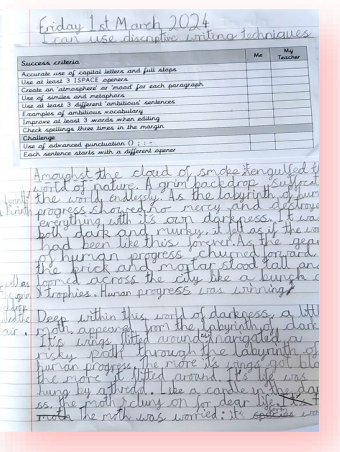 Friday 1st March 2024
I can use discriptive writing techniques
Success criteria
Me
My Teacher
Accurate use of capital letters and full stops
Use at least 3 ISPACE openers
Create an 'atmosphere' or 'mood' for each paragraph
Use of similes and metaphors
Use at least 3 different 'ambitious' sentences
Examples of ambitious vocabulary
Improve at least 3 words when editing
Check spellings three times in the margin
Challenge
Use of advanced punctuation () ; : -
Each sentence starts with a different opener
Amoughst the cloud of smoke engulfed t
world of nature. A grim backdrop,
the world endlessly. As the labyrinth of hum
progress showed no mercy and destroye
everything with its own darkness. It wa
both dark and murky. it fell as if the wo
had been like this forever. As the gear
of human progress churned forward
the brick and mortar stood tall an
across the city like a bunch o
trophies. Human progress was winning
Deep within this world of darkness, a litt
moth appeared from the labyrinth of dark
It's wings flitted around navigated a
risky path through the labyrinth of
human progress. The more it's wings got bla
the more it flitted around. It's life was
hung by a thredd. Like a candle in
ss. the moth clung on for dear life.
moth the moth was worried: it's